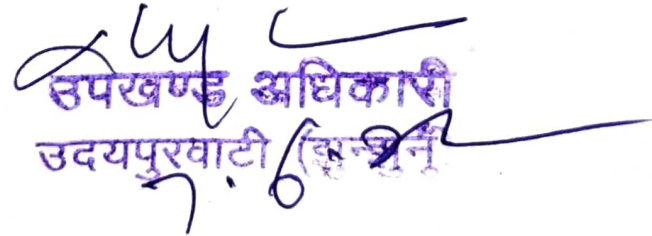 उपखण्ड अधिकारी
उदयपुरवाटी (झुन्झुनूं